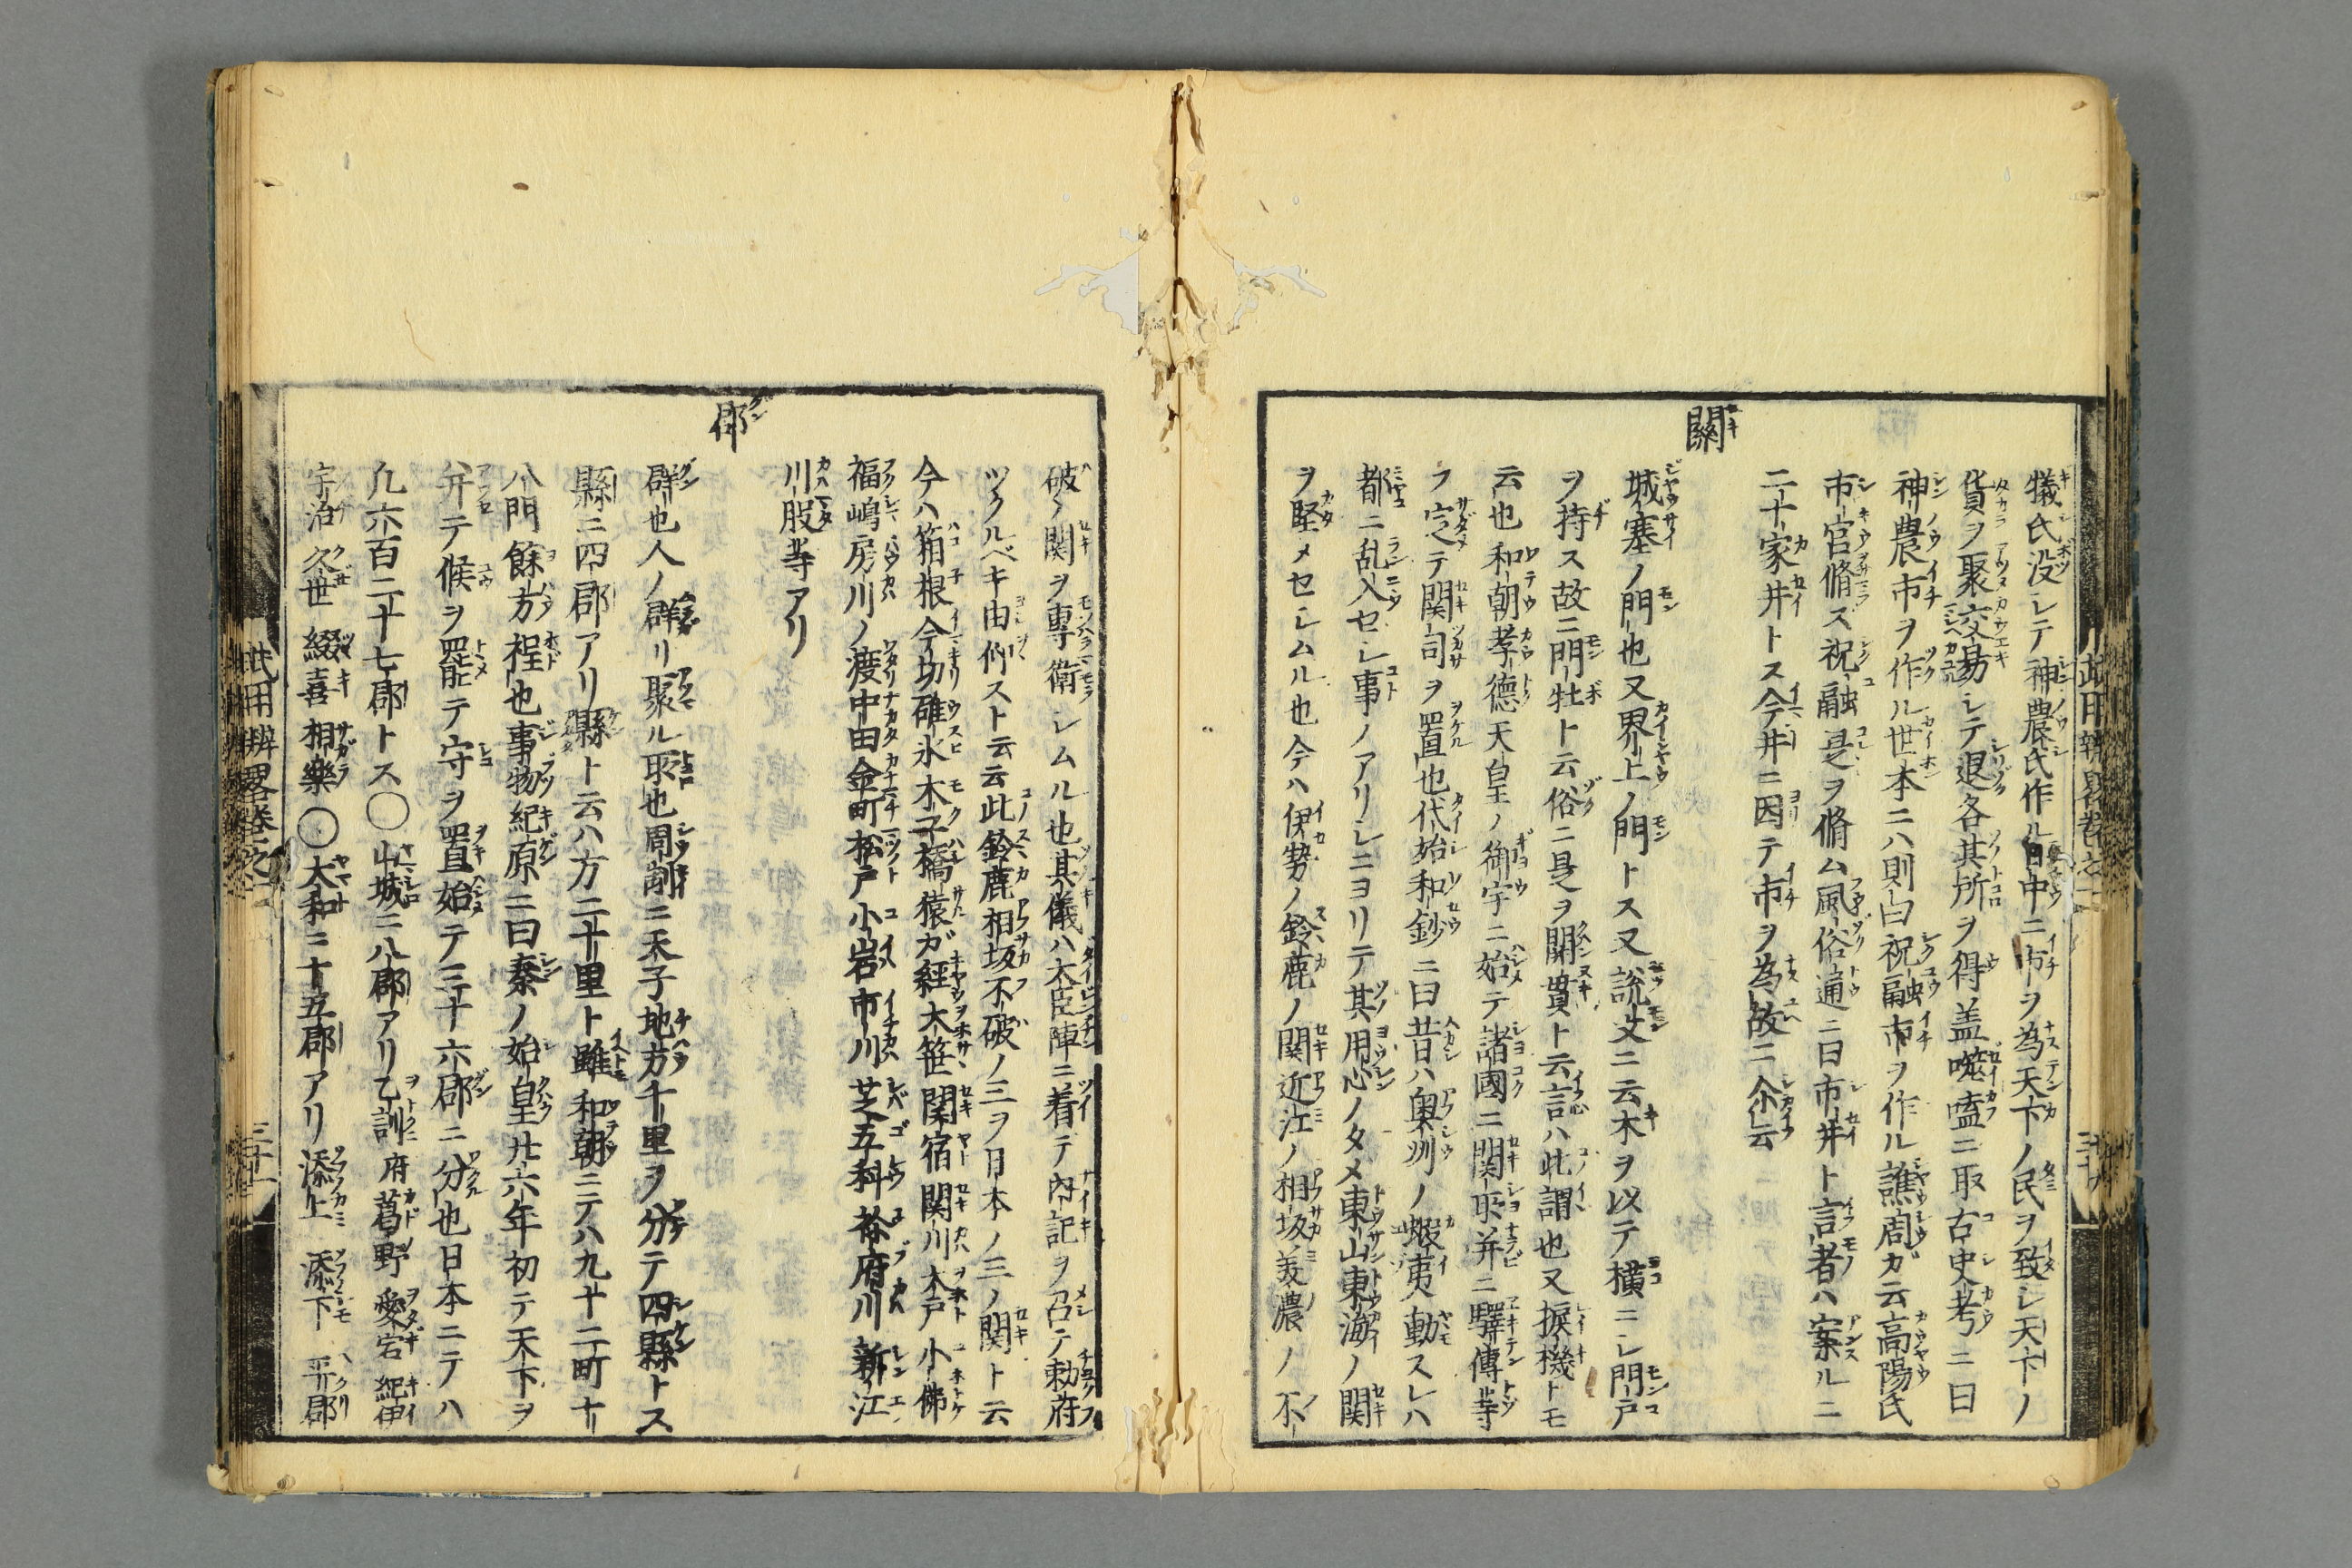 犠氏没シテ神農氏作ル日中ニ市ヲ為天下ノ民ヲ致シ天下ノ
貨ヲ聚交易シテ退各其所ヲ得盖噬嗑ニ取古史考ニ曰
神農市ヲ作ル世本ニハ則曰祝融市ヲ作ル譙周ガ云高陽氏
市官脩ス祝融是ヲ脩ム風俗通ニ曰市井ト言者ハ案ルニ
二十家井トス今井ニ因テ市ヲ為故ニ尒云
關
城塞ノ門也又界上ノ門トス又説文ニ云木ヲ以テ横ニシ門戸
ヲ持ス故ニ門牡ト云俗ニ是ヲ關貫ト云言ハ此謂也又捩機トモ
云也和朝孝德天皇ノ御宇ニ始テ諸國ニ関所并ニ驛傳等
フ定テ関司ヲ置也代始和鈔ニ曰昔ハ奥洲ノ蝦夷動スレハ
都ニ乱入セシ事ノアリシニヨリテ其用心ノタメ東山東海ノ関
ヲ堅メセシムル也今ハ伊勢ノ鈴鹿ノ関近江ノ相坂美濃ノ不
破ノ関ヲ專衛シムル也其儀ハ大臣陣ニ着テ内記ヲ召テ勅府
ツクルベキ由仰スト云云此鈴鹿相坂不破ノ三ヲ日本ノ三ノ関ト云
今ハ箱根今切碓氷木子橋猿ガ經大笹関宿関川木戸小佛
福嶋房川ノ渡中田金町松戸小岩市川芝五科裕府川新江
川股等アリ
郡
群也人ノ群リ聚ル所也周制ニ天子地方千里ヲ分テ四縣トス
縣ニ四郡アリ縣ト云ハ方二十里ト雖和朝ニテハ九十二町十
八門餘方程也事物紀原ニ曰秦ノ始皇廿六年初テ天下ヲ
并テ候ヲ罷テ守ヲ置始テ三十六郡ニ分也日本ニテハ
凡六百二十七郡トス〇山城ニ八郡アリ乙訓府葛野愛宕紀伊
宇治久世綴喜相樂〇大和ニ十五郡アリ添上添下平郡
武用辨畧卷之二